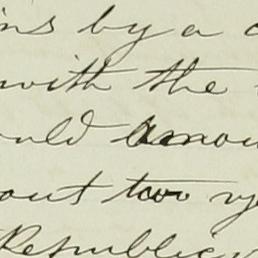 ins by a
with the
ould amou
out two y
Republic